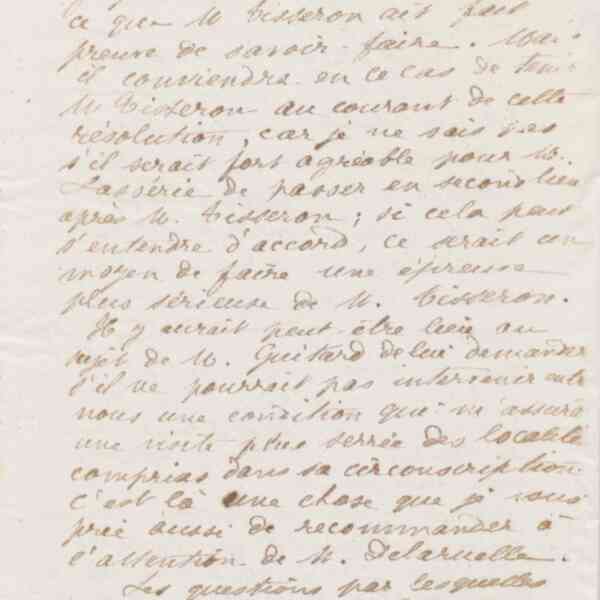 ce que M. Tisseron ait fait
preuve de savoir-faire. Mais
il conviendra en ce cas de tenir
M. Tisseron au courant de cette
résolution, car je ne sais pas
s'il serait fort agréable pour M.
Lasserie de passer en second lieu
après M. Tisseron ; si cela peut
s'entendre d'accord, ce serait un
moyen de faire une épreuve
plus sérieuse de M. Tisseron.
Il y aurait peut-être lieu au
sujet de M. Guitard de lui demander
s'il ne pourrait pas intervenir entre
nous une condition qui m'assure
une visite plus serrée des localités
comprises dans sa circonscription.
C'est là une chose que je vous
prie aussi de recommander à
l'attention de M. Delaruelle.
Les questions par lesquelles